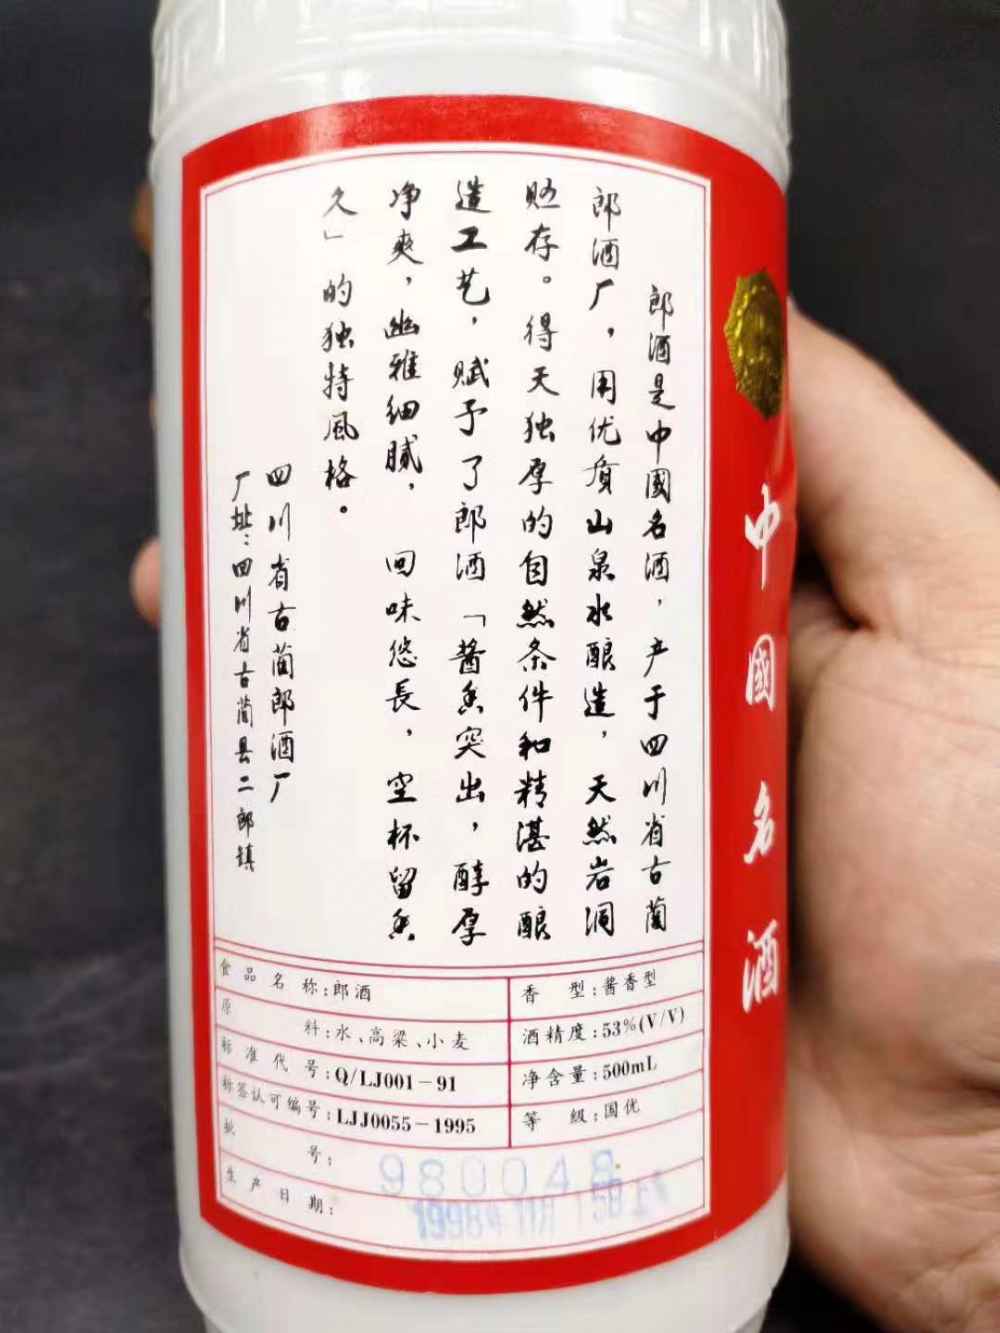 郎酒是中國名酒，产于四川省古蔺
郎酒厂，用优质山泉水酿造，天然岩洞
贮存。得天独厚的自然条件和精湛的酿
造工艺，赋予了郎酒「酱香突出，醇厚
净爽，幽雅细腻，回味悠長，空杯留香
久」的独特風格。
四川省古蔺郎酒厂
厂址：四川省古蔺县二郎镇
中國名酒
食品名称：郎酒
香型：酱香型
原料：水、高粱、小麦
酒精度：53%(V/V)
标准代号：Q/LJ001-91
净含量：500mL
标签认可编号：LJJ0055-1995
等級：国优
批号：980048
生产日期：